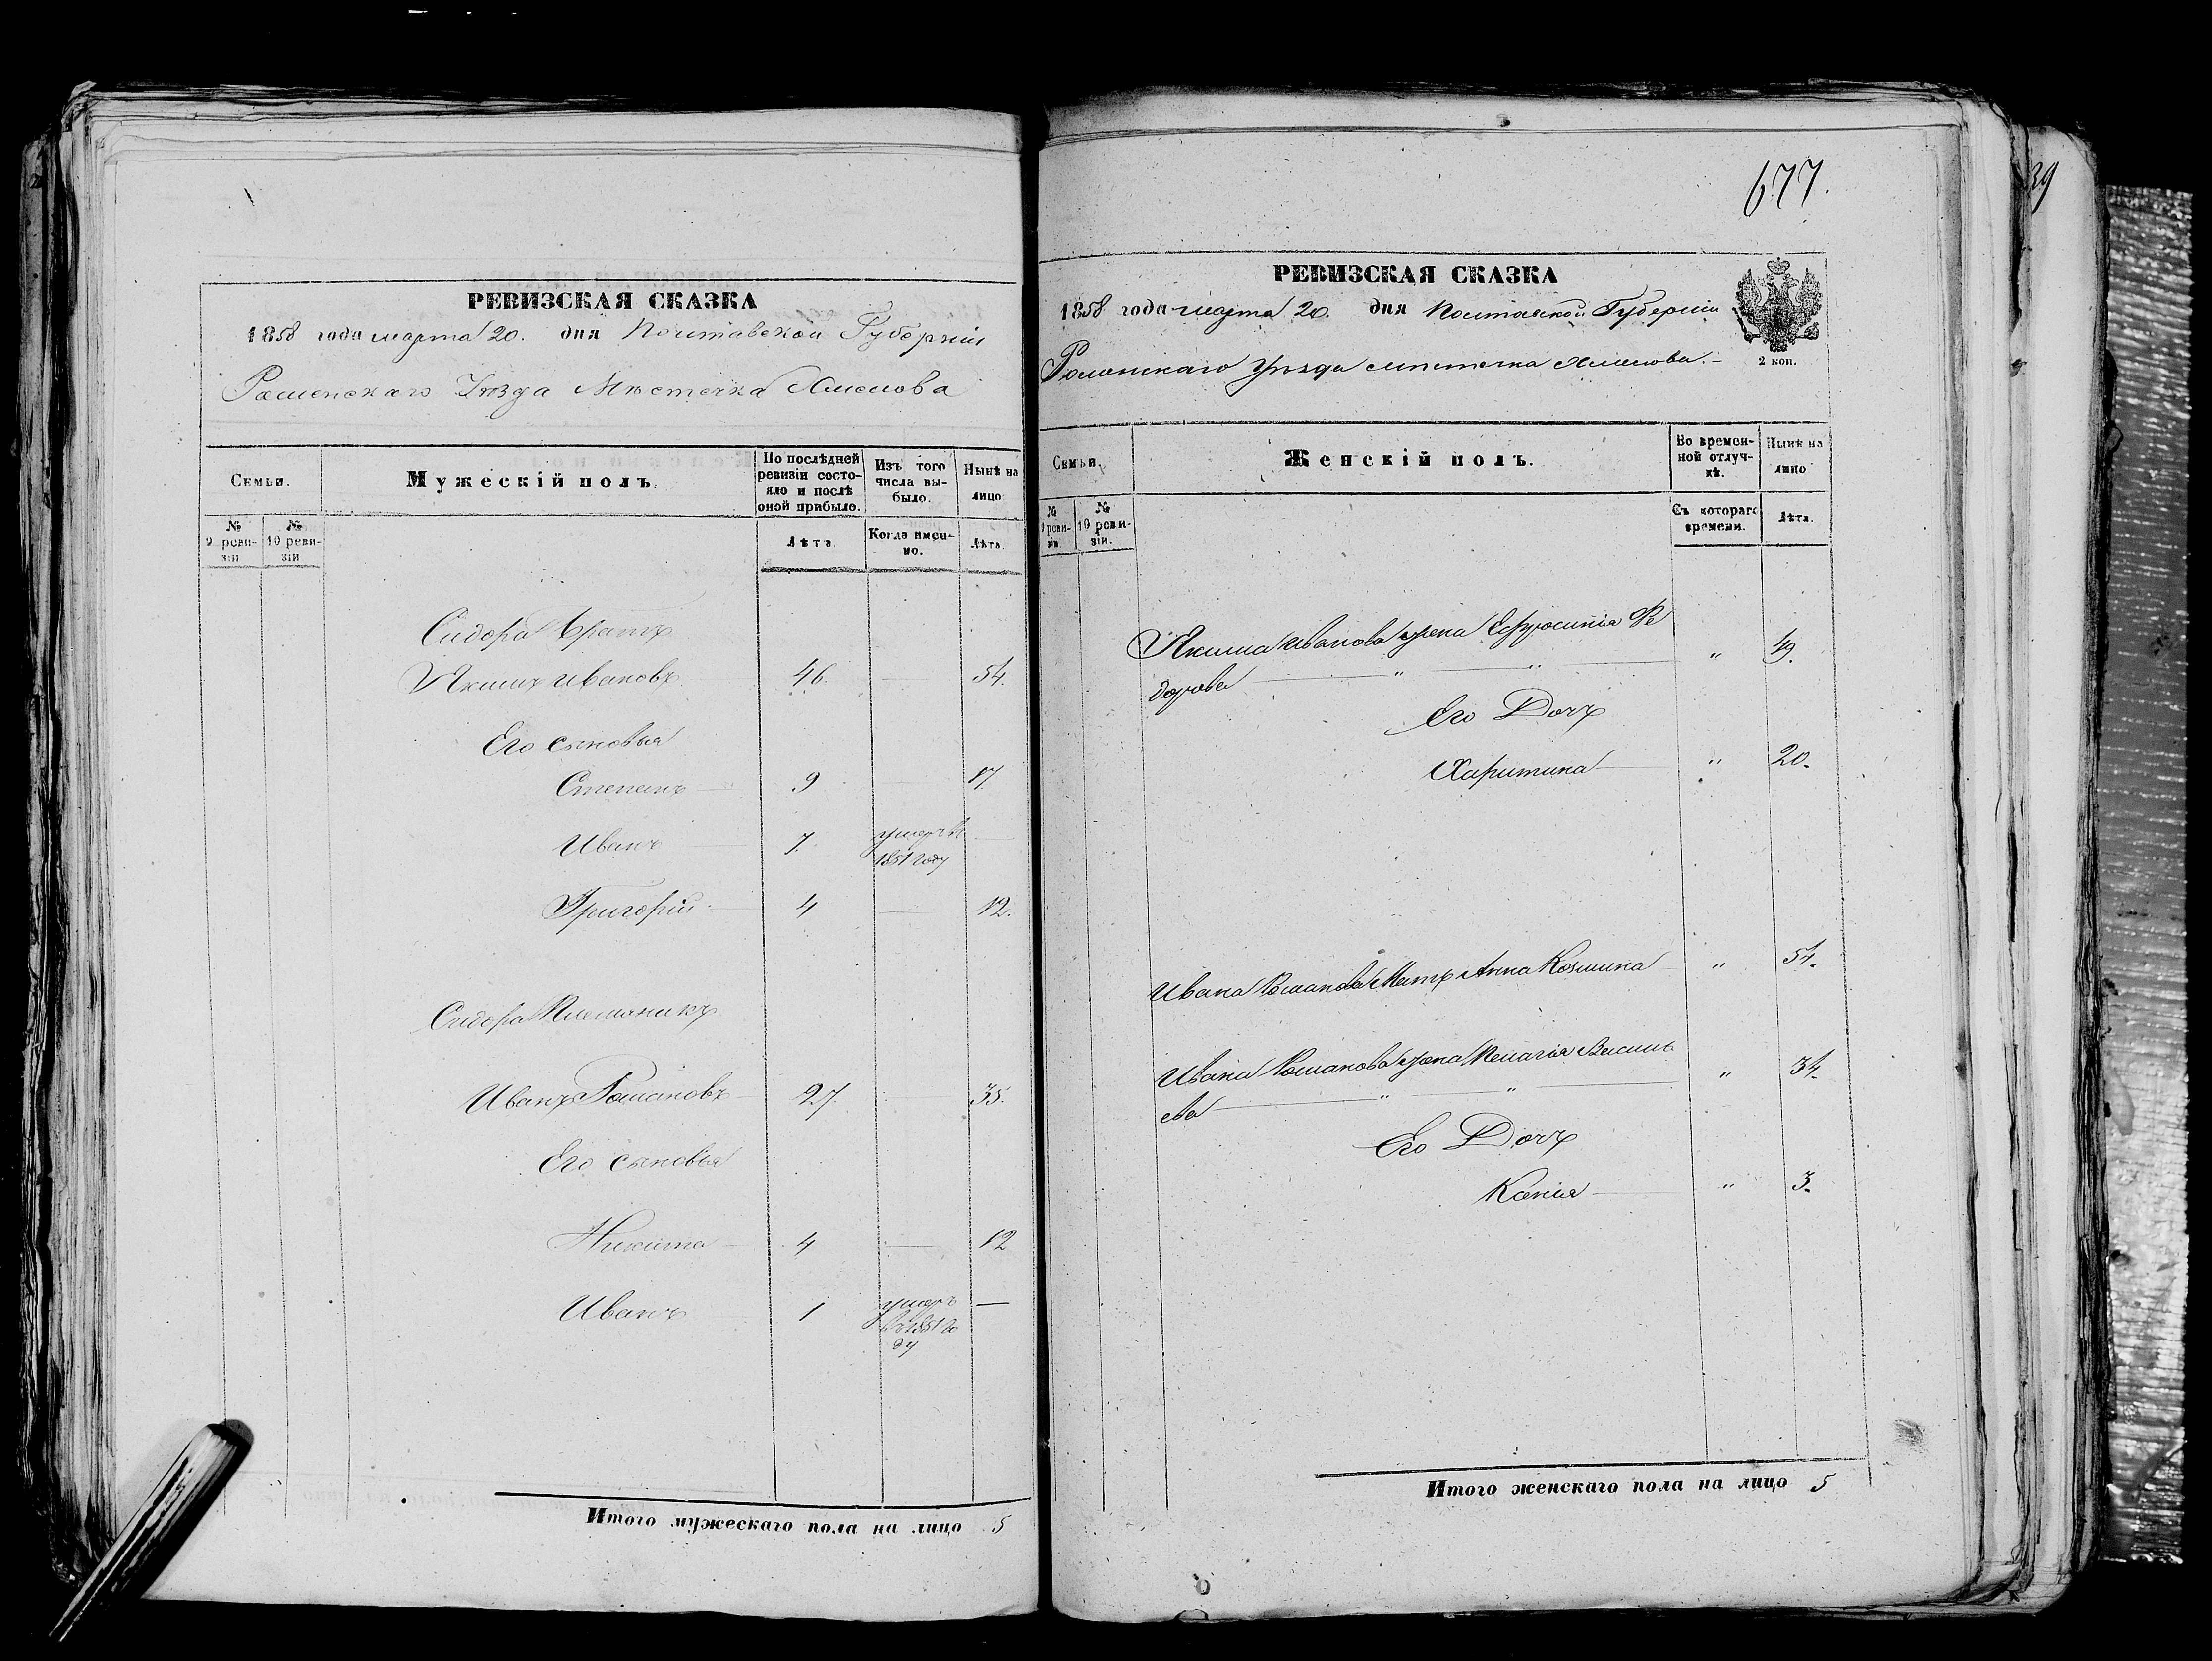 РЕВИЗСКАЯ СКАЗКА
1858 года марта 20. дня Полтавской Губерніи
Роменскаго Уѣзда Мѣстечка Хмелова
Семьи.
Мужескій полъ.
По послѣдней ревизіи состояло и послѣ оной прибыло.
Изъ того числа выбыло.
Нынѣ на лицо
№ 9 ревизіи
№ 10 ревизіи
Лѣта
Когда именно.
Лѣта
Сидора братъ
Якимъ Ивановъ 46. — 54.
Его сыновья
Степанъ — 9 — 17
Иванъ — 7. умеръ въ —
1851 году
Григорій — 4 — 12.
Сидора Племяникъ
Иванъ Романовъ 27 35.
Его сыновья
Никита — 4 — 12
Иванъ 1 умеръ —
въ 1851 го
ду
Итого мужескаго пола на лицо 5
677.
РЕВИЗСКАЯ СКАЗКА
1858 года марта 20. дня Полтавской Губерніи
Роменскаго Уѣзда мѣстечка Хмелова. –
2 коп.
Семьи
Женскій полъ.
Во временной отлучкѣ.
Нынѣ на лицо
№ 9 ревизіи.
№ 10 ревизіи.
Съ котораго времени.
Лѣта.
Якима Иванова жена Ефросинія Фе
дорова — " — " — " 49.
Его Дочь
Харитина — " 20.
Ивана Романова Мать Анна Козмина " 54.
Ивана Романова жена Пелагія Василь
ева — " — " — " 34.
Его Дочь
Ксенія — " 3.
Итого женскаго пола на лицо 5
29